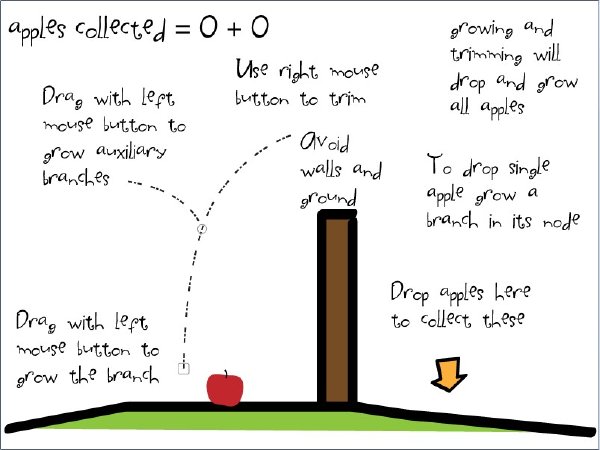 apples collected = 0 + 0
growing and
trimming will
drop and grow
all apples
Use right mouse
button to trim
Drag with left
mouse button to
grow auxiliary
branches
Avoid
walls and
ground
To drop single
apple grow a
branch in its node
Drop apples here
to collect these
Drag with left
mouse button to
grow the branch